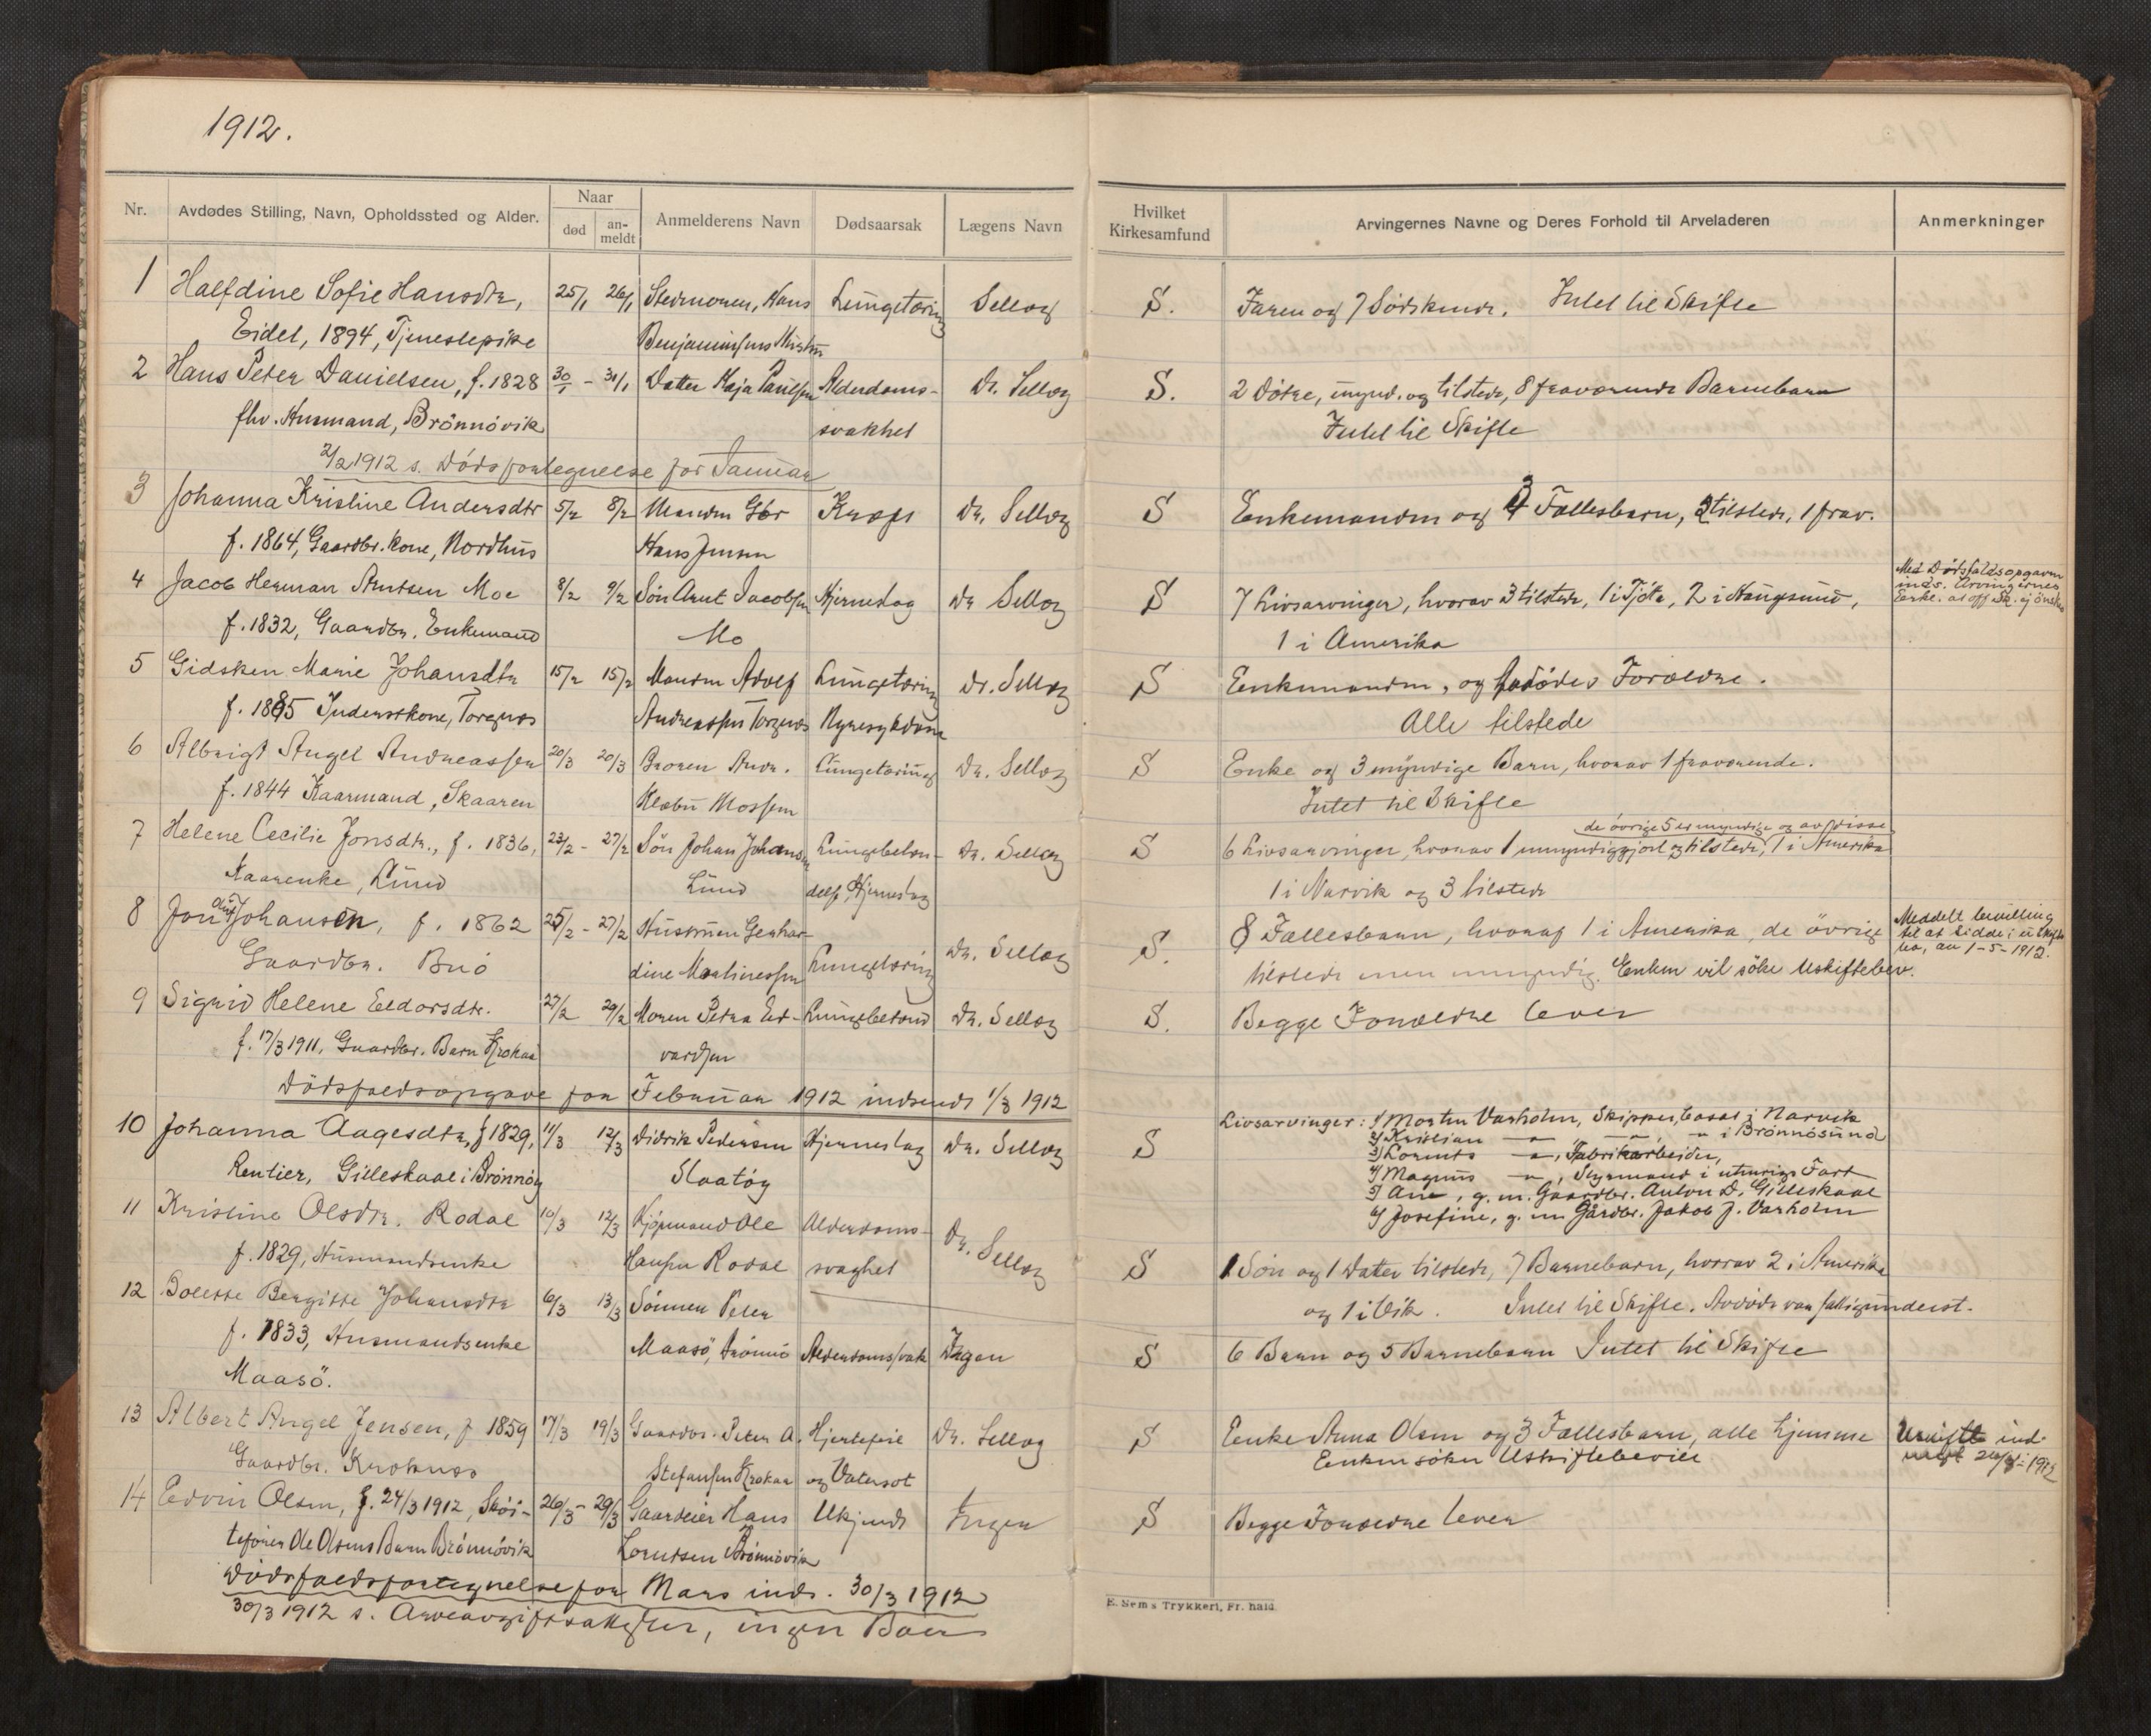 1912.
Nr. Avdødes Stilling, Navn, Opholdssted og Alder. Naar død an-meldt Anmelderens Navn Dødsaarsak Lægens Navn Hvilket Kirkesamfund Arvingernes Navne og Deres Forhold til Arveladeren Anmerkninger
1 Halfdine Sofie Hansdtr, 25/1 26/1 Hans Lungetæring Sellæg S. Faren og 7 Sødskende. Intet til Skifte
Eidet, 1894, Tjenestepike Benjaminsens
2 Hans Peter Danielsen, f. 1828 30/1 - 31/1 Datter Kaja Paulsen Alderdoms- Dr. Sellæg S. 2 Døtre, mynd. og tilstede, 8 fraværende Barnebarn
fhv. Husmand, Brönnövik svakhet Intet til Skifte
2/2 1912 s. Dödsfortegnelse for Januar
3 Johanna Kristine Andersdtr 5/2 8/2 Manden Gbr Kræft Dr. Sellæg S Enkemanden og 3 Fællesbarn, 2 tilstede, 1 frav.
f. 1864, Gaardbr. kone, Nordhus Hans Jensen
4 Jacob Herman Arntsen Moe 8/2 9/2 Søn Arnt Jacobsen Hjerneslag Dr Sellæg S 7 Livsarvinger, hvorav 3 tilstede, 1 i Tjøta, 2 i Haugesund, Med Dødsfaldsopgaven inds. Arvingernes Erkl. at off. Sk. ej önskes
f. 1832, Gaardbr. Enkemand Mo 1 i Amerika
5 Gidsken Marie Johansdtr 15/2 15/2 Manden Adolf Lungetæring Dr. Sellæg S Enkemanden, og Avdødes Forældre.
f. 1885 Inderstkone, Torgnes Andreassen Torgnes Nyresykdom Alle tilstede
6 Albrigt Angel Andreassen 20/3 20/3 Broren Andr. Lungetæring Dr. Sellæg S Enke og 3 myndige Barn, hvorav 1 fraværende.
f. 1844 Kaarmand, Skaaren Klæbu Mossem Intet til Skifte
7 Helene Cecilie Jonsdtr., f. 1836, 23/2 - 27/2 Søn Johan Johansen Lungebetæn- Dr. Sellæg S 6 Livsarvinger, hvorav 1 umyndiggjort og tilstede, de övrige 5 er myndige og av disse 1 i Amerika
Kaarenke, Lund Lund delse, Hjerneslag 1 i Narvik og 3 tilstede
8 Jon Johansen, f. 1862 25/2 - 27/2 Husmoren Gerhar- Lungetæring Dr. Sellæg S. 8 Fællesbarn, hvoraf 1 i Amerika, de övrige Meddelt bevilling til at sidde i u Skiftet bo, av 1-5-1912.
Gaardbr. Buö dine Martinessen tilstede men umyndig. Enken vil söke Uskiftebev.
9 Sigrid Helene Eldorsdtr. 27/2 29/2 Moren Petra Ed- Lungebetænd Dr. Sellæg S. Begge Forældre lever
f. 17/3 1911, Gaardbr. Barn Krokaa vardsen
Dödsfaldsopgave for Februar 1912 indsendt 1/3 1912
10 Johanna Aagesdtr, f 1829, 11/3 12/3 Didrik Pedersen Hjerneslag Dr. Sellæg S Livsarvinger: 1) Morten Varholm, Skipper, bosat i Narvik
2) Kristian — " — , — " — , " i Brönnösund
3) Lorents — " —, Fabrikarbeider,
Rentier, Gilleskaal i Brønnøy Slaatøy 4) Magnus — " —, Styrmand i utenrigs Fart
5) Ane, g. m. Gaardbr. Anton D. Gilleskaal
6) Josefine, g. m Gårdbr. Jakob J. Varholm
11 Kristine Olsdtr. Rodal 10/3 12/3 Kjøpmand Ole Alderdoms- Dr. Sellæg S 1 Søn og 1 Datter tilstede, 7 Barnebarn, hvorav 2 i Amerika
f. 1829, Husmandsenke Hansen Rodal svaghet og 1 i Vik. Intet til Skifte. Avdøde var fattigunderst.
12 Bolette Bergitte Johansdtr 6/3 13/3 Sønnen Peter
f. 1833, Husmandsenke Maasö, Brönnö Alderdomssvak Ingen S 6 Barn og 5 Barnebarn Intet til Skifte
Maasö.
13 Albert Angel Jensen, f 1859 17/3 19/3 Gaardbr. Peter A. Hjertefeil Dr. Sellæg S Enke Anna Olsen og 3 Fællesbarn, alle hjemme Uskifte ind-
Gaardbr. Kroknes Stefansen Krokaa og Vatersot Enken søker Uskiftebevill 20/4-1912
14 Edvin Olsen, f. 24/3 1912, Skøi- 26/3 - 29/3 Gaardeier Hans Ukjendt Ingen S Begge Forældre lever
tefører Ole Olsens Barn Brönnövik Lorntsen Brönnövik
Dødsfaldsfortegnelse for Mars inds. 30/3 1912
30/3 1912 s. Arveavgiftsattester, ingen Boer
E. Sem's Trykkeri, Fr. hald.